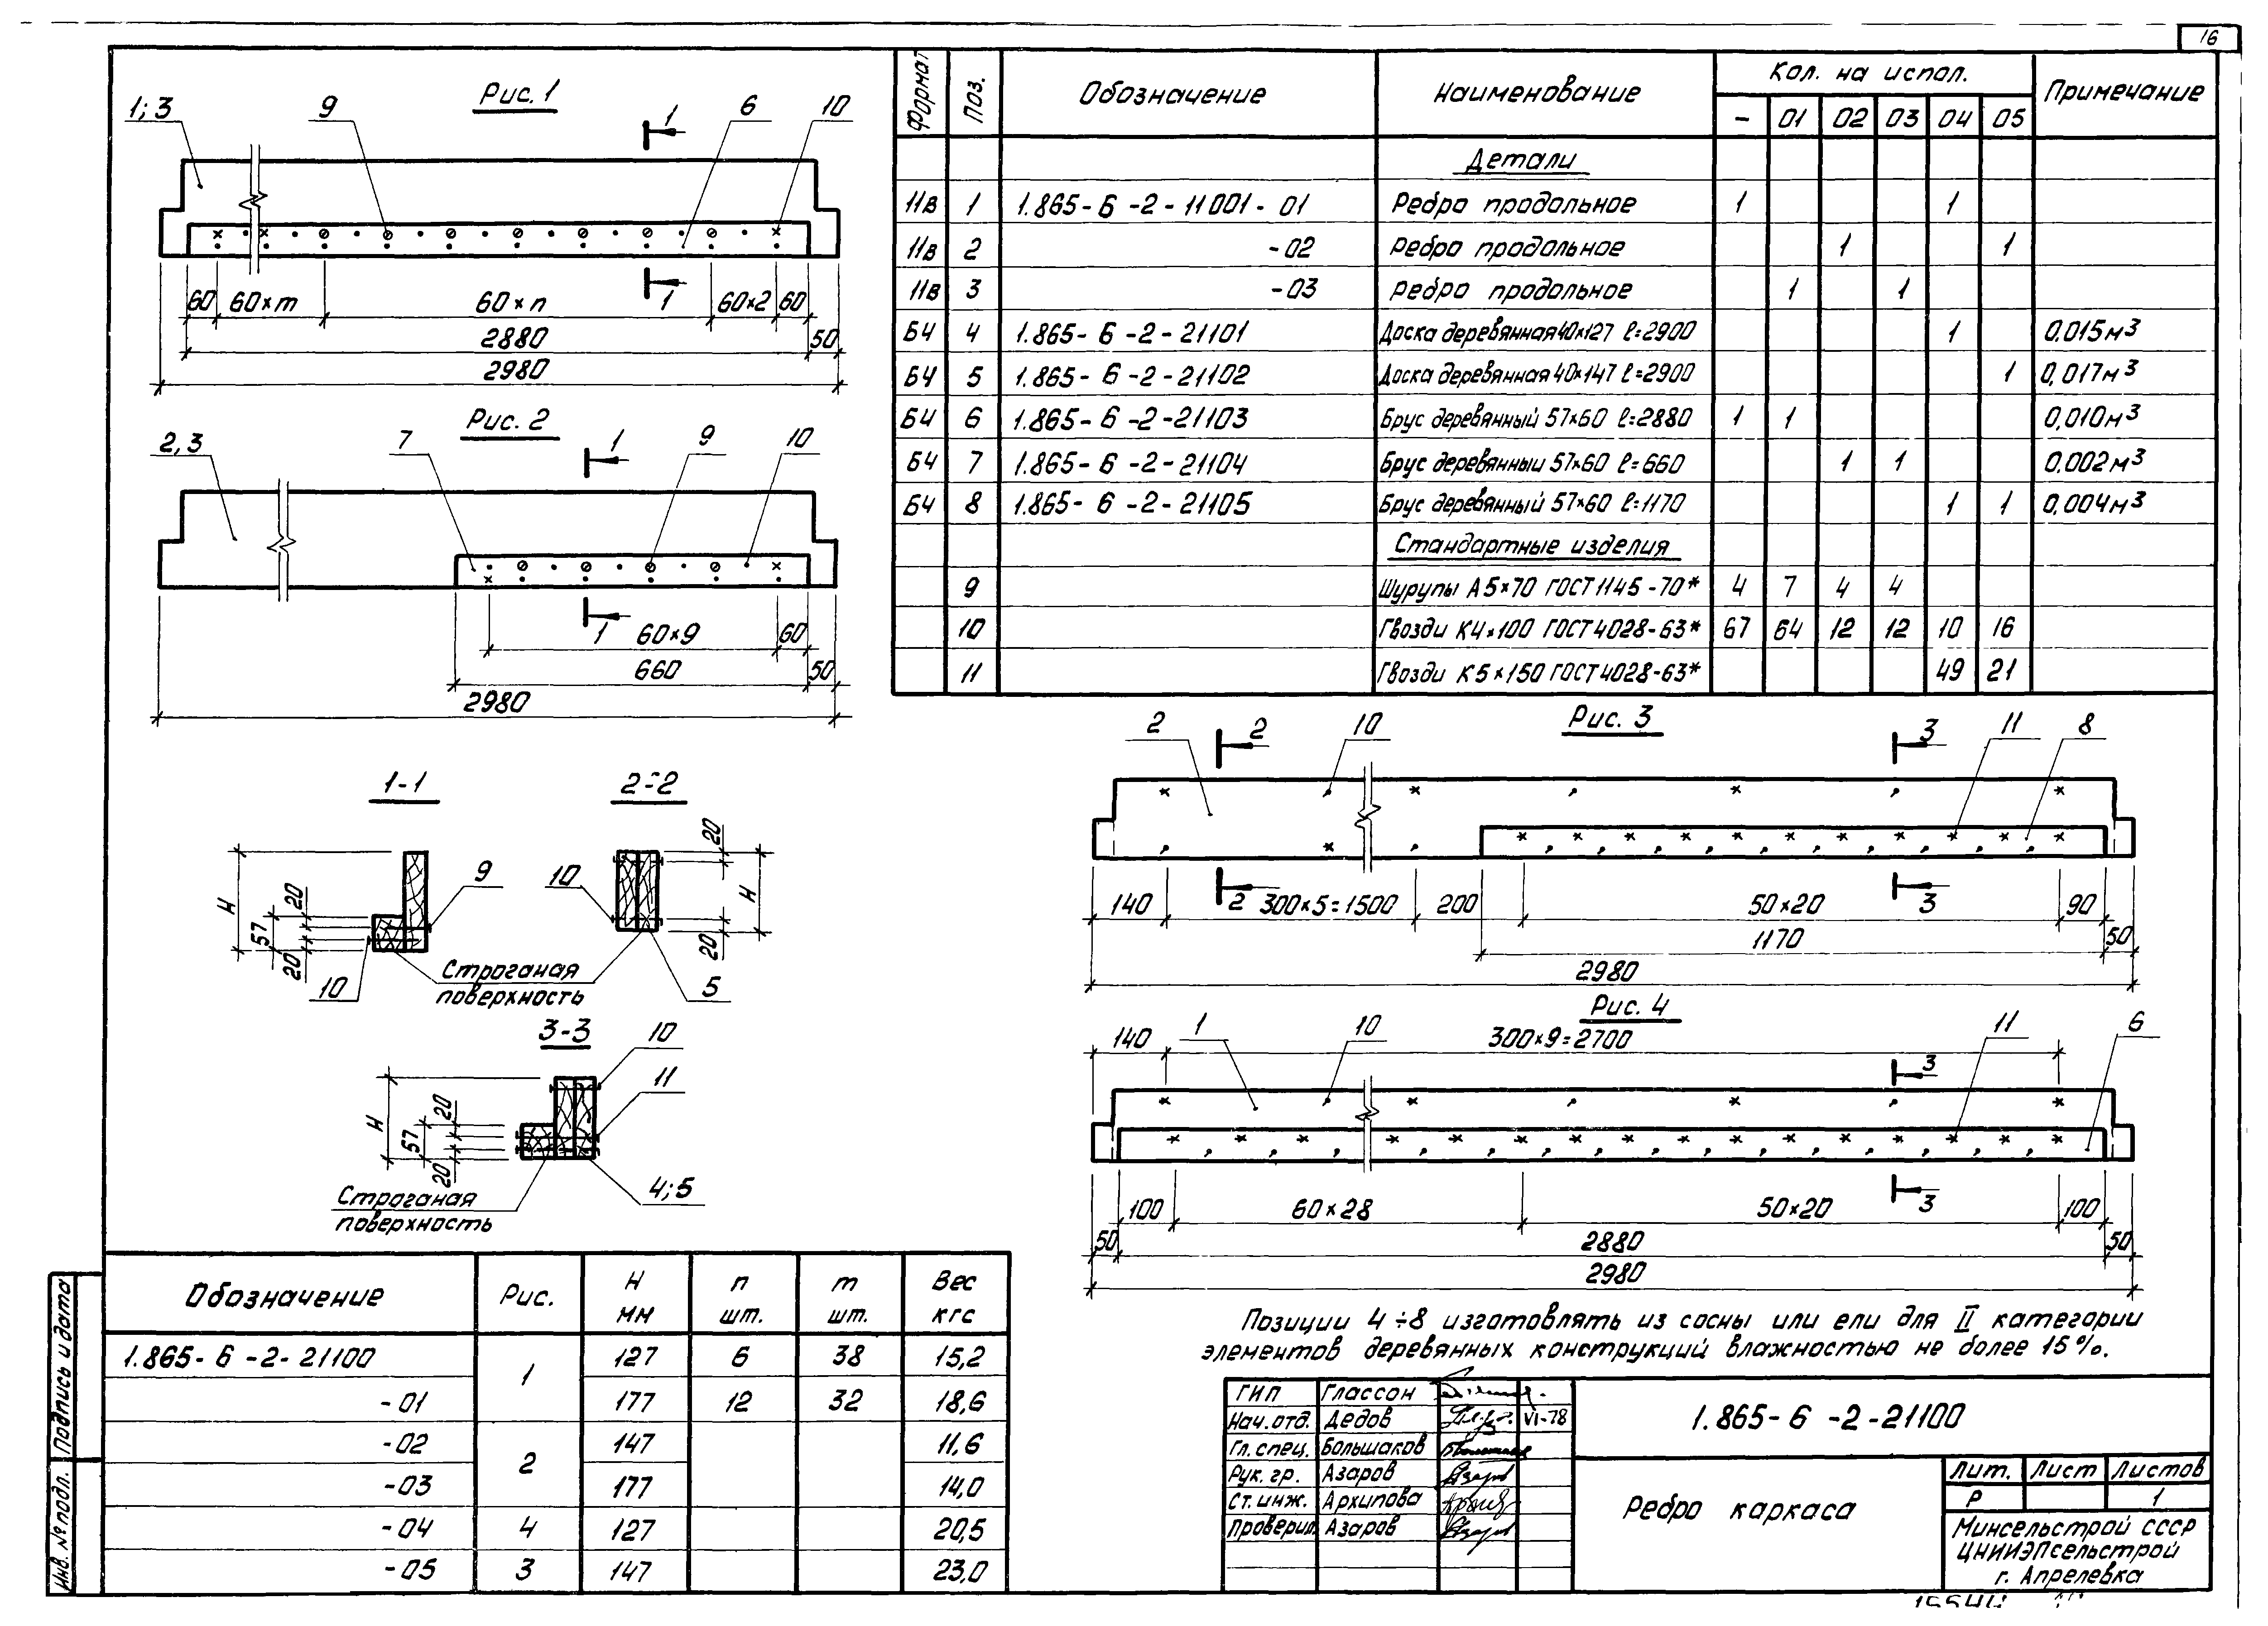 16
Рис. 1
1; 3
9
1
6
10
60
60×m
60×n
1
60×2
60
2880
50
2980
Рис. 2
2, 3
7
1
9
10
1
60×9
60
660
50
2980
1-1
H
57
20
20
9
10
Строганая
поверхность
2-2
10
20
20
H
5
3-3
H
57
20
20
10
11
4;5
Строганая
поверхность
Формат Поз. Обозначение Наименование Кол. на испол. Примечание
- 01 02 03 04 05
Детали
11в 1 1.865-6-2-11001-01 Ребро продольное 1 1
11в 2 -02 Ребро продольное 1 1
11в 3 -03 Ребро продольное 1 1
БЧ 4 1.865-6-2-21101 Доска деревянная 40×127 ℓ=2900 1 0,015м³
БЧ 5 1.865-6-2-21102 Доска деревянная 40×147 ℓ=2900 1 0,017м³
БЧ 6 1.865-6-2-21103 Брус деревянный 57×60 ℓ=2880 1 1 0,010м³
БЧ 7 1.865-6-2-21104 Брус деревянный 57×60 ℓ=660 1 1 0,002м³
БЧ 8 1.865-6-2-21105 Брус деревянный 57×60 ℓ=1170 1 1 0,004м³
Стандартные изделия
9 Шурупы А5×70 ГОСТ 1145-70* 4 7 4 4
10 Гвозди К4×100 ГОСТ 4028-63* 67 64 12 12 10 16
11 Гвозди К5×150 ГОСТ 4028-63* 49 21
Рис. 3
2
2
10
3
11
8
140
2
300×5=1500
200
50×20
3
90
1170
50
2980
Рис. 4
140
1
10
300×9=2700
11
6
3
100
60×28
50×20
3
100
50
2880
50
2980
Позиции 4÷8 изготовлять из сосны или ели для II категории
элементов деревянных конструкций влажностью не более 15%.
Обозначение Рис. H мм n шт. m шт. Вес кгс
1.865-6-2-21100 1 127 6 38 15,2
-01 177 12 32 18,6
-02 2 147 11,6
-03 177 14,0
-04 4 127 20,5
-05 3 147 23,0
Подпись и дата
Инв. № подл.
ГИП Глассон
Нач. отд. Дедов VI-78
Гл. спец. Большаков
Рук. гр. Азаров
Ст. инж. Архипова
Проверил Азаров
1.865-6-2-21100
Ребро каркаса
Лит. Лист Листов
Р 1
Минсельстрой СССР
ЦНИИЭПсельстрой
г. Апрелевка